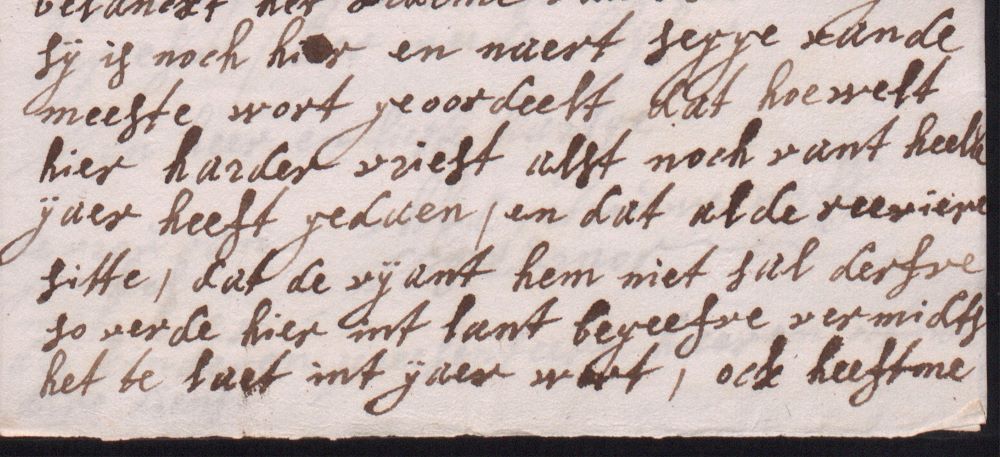 belanckt het
sÿ is noch hier en naert segge vande
meeste wort geoordeelt dat hoewelt
hier harder vriest alst noch vant heele
ÿaer heeft gedaen, en dat al de reeviere
sitte, dat de vÿant hem niet sal derfve
so verde hier int lant begeefve vermidts
het te laet int ÿaer wort, ock heeftme